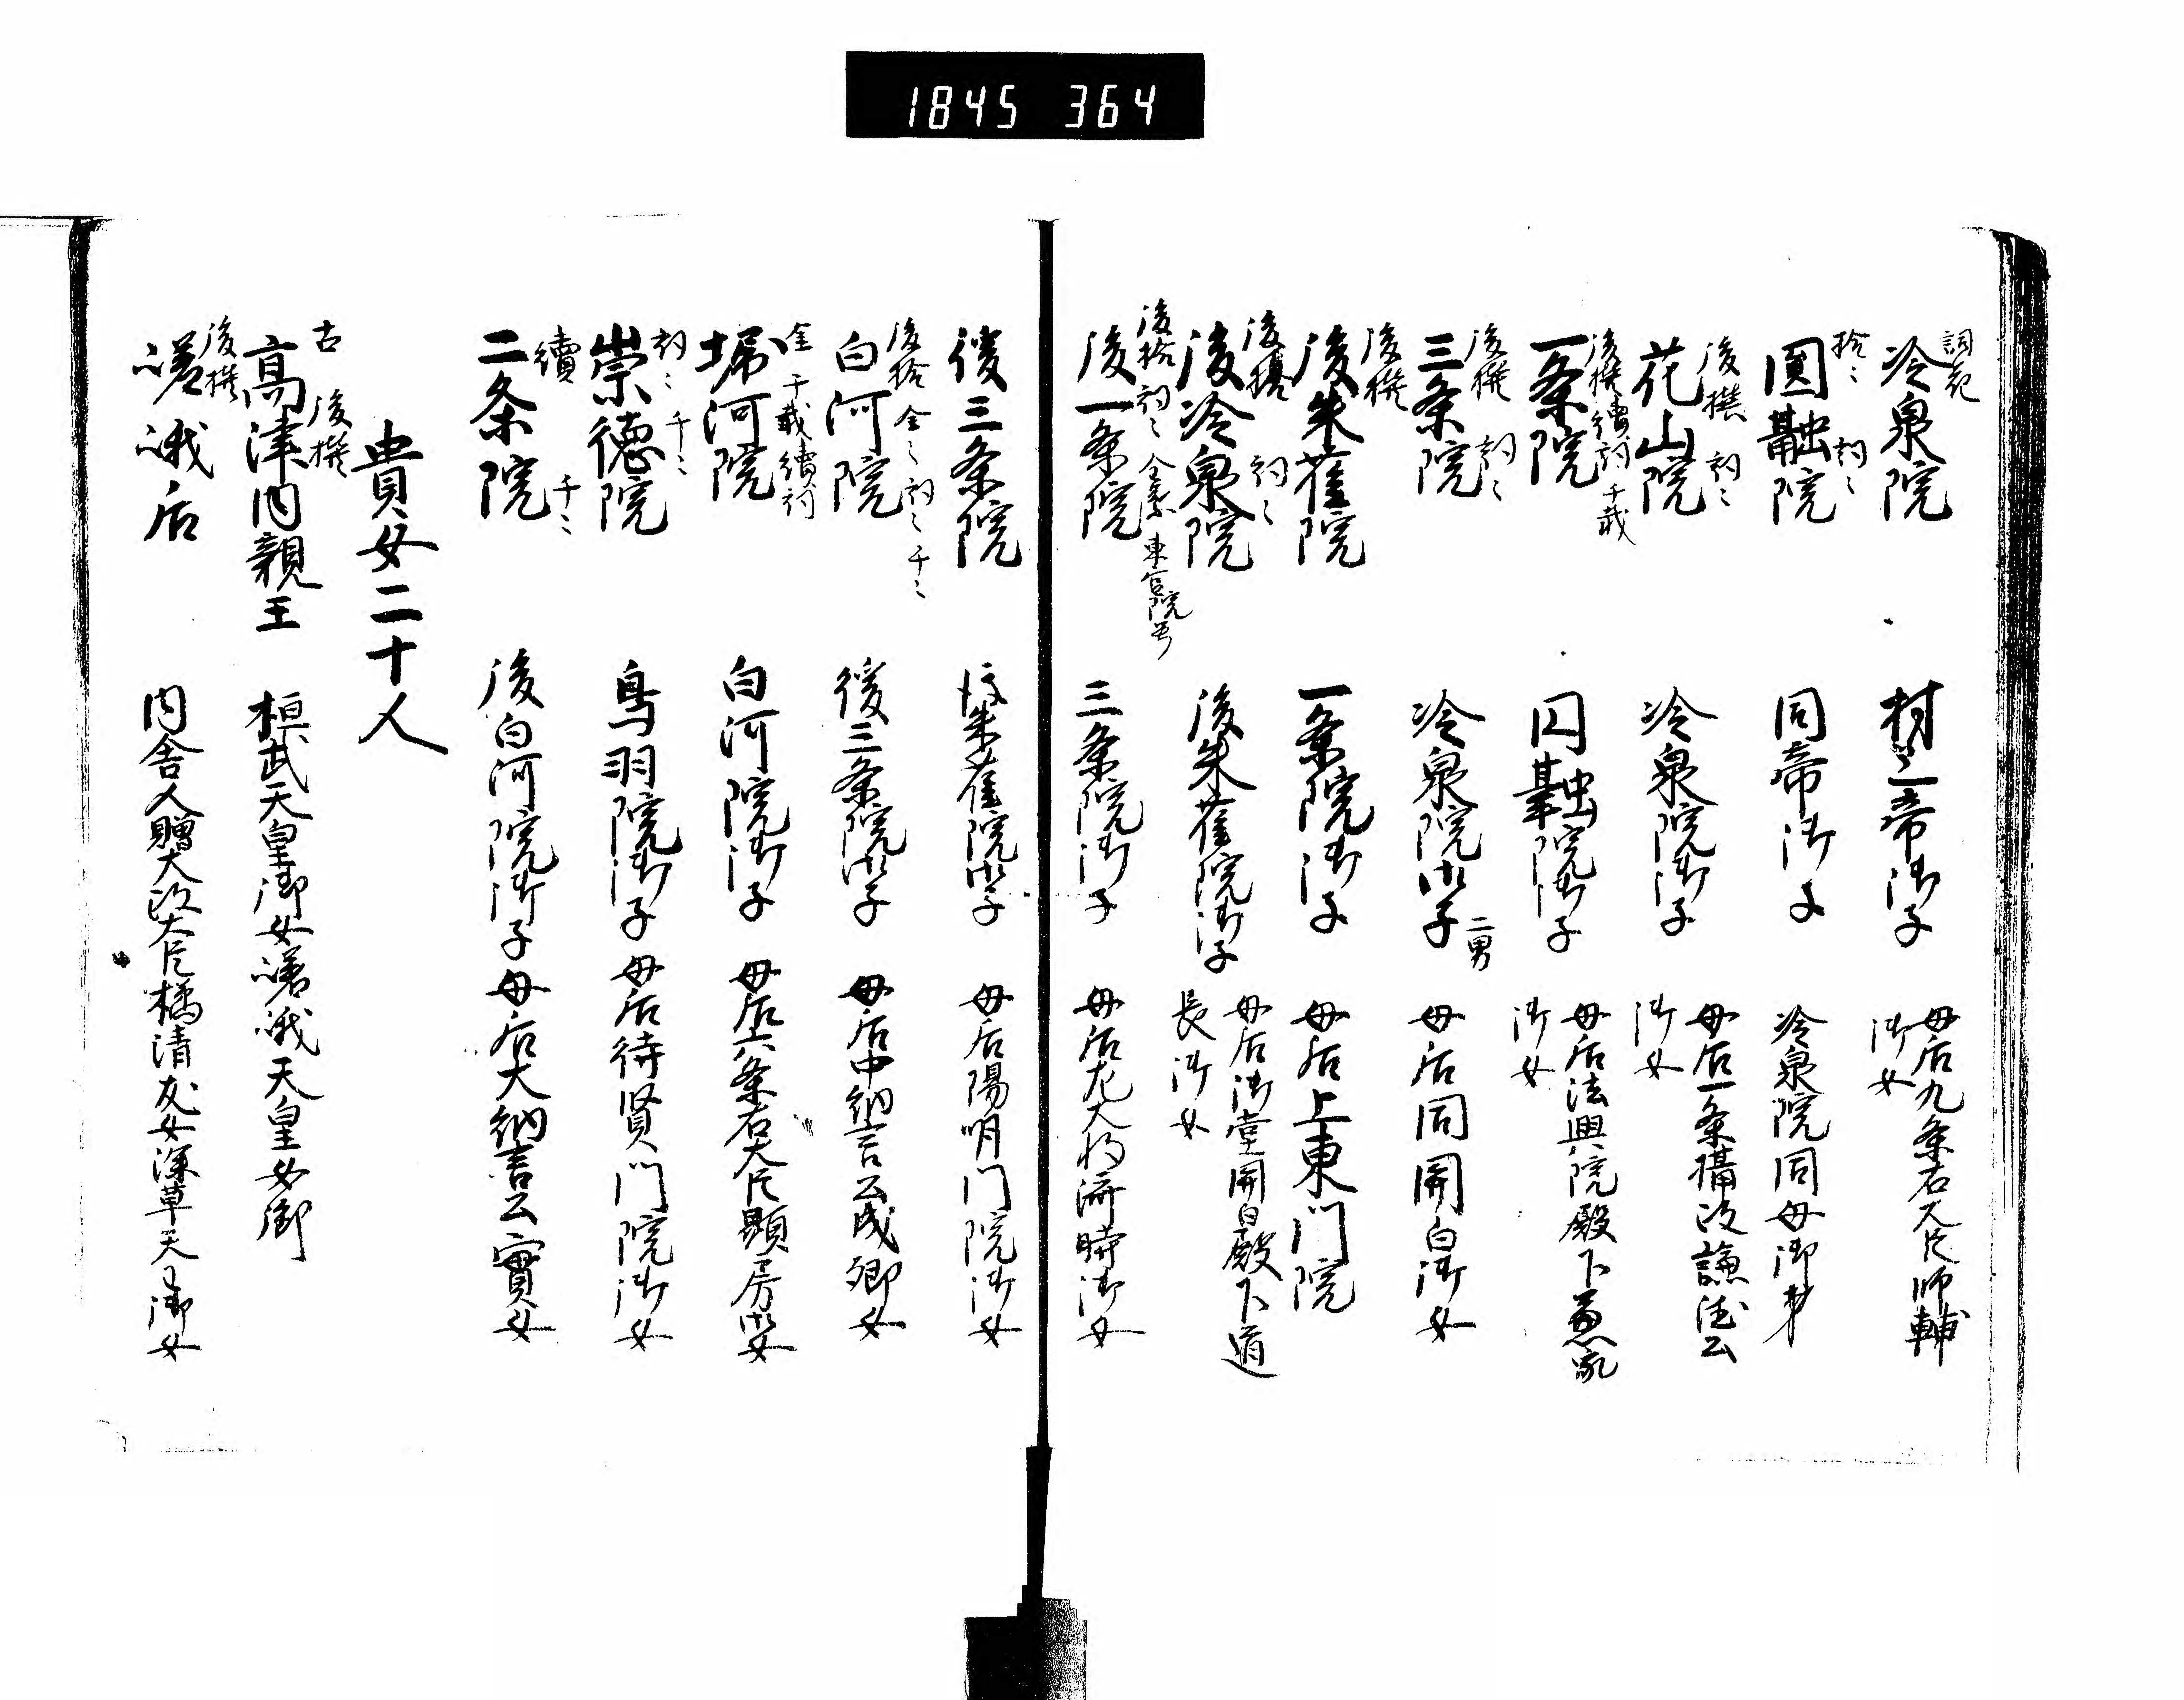 1845 364
詞花
冷泉院 村上帝御子 母后九条右大臣師輔
御女
拾〻 詞〻
圓融院 同帝御子 冷泉院同母御弟
後撰 詞〻
花山院 冷泉院御子 母后一条摂政謙徳公
御女
後撰 續詞 千載
一条院 円融院御子 母后法興院殿下兼家
御女
後撰 詞〻
三条院 冷泉院御子 二男 母后同関白御女
後撰
後朱雀院 一条院御子 母后上東門院
後撰 詞〻
後冷泉院 後朱雀院御子 母后御堂関白殿下道
長御女
後拾 詞〻 東宮院号
後一条院 三条院御子 母后左大将済時御女
後三条院 後朱雀院御子 母后陽明門院御女
後拾 金〻 詞〻 千〻
白河院 後三条院御子 母后中納言公成卿女
金 千載 續詞
堀河院 白河院御子 母后六条右大臣顕房御女
詞〻 千〻
崇徳院 鳥羽院御子 母后待賢門院御女
續 千〻
二条院 後白河院御子 母后大納言公實女
貴女二十人
古 後撰
高津内親王 桓武天皇御女嵯峨天皇女御
後撰
嵯峨后 内舎人贈太政大臣橘清友女深草天王御女